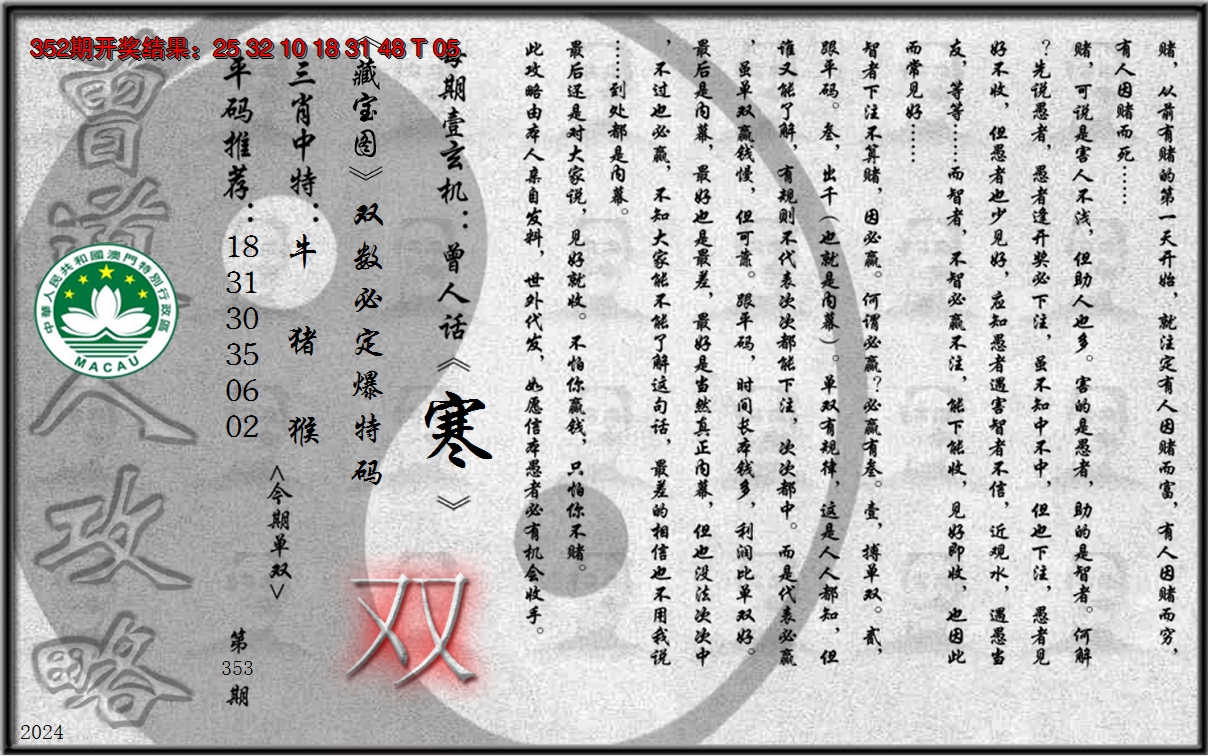 352期开奖结果：25 32 10 18 31 48 T 05
赌，从前有赌的第一天开始，就注定有人因赌而富，有人因赌而穷，
有人因赌而死……
赌，可说是害人不浅，但助人也多。害的是愚者，助的是智者。何解
？先说愚者，愚者逢开奖必下注，虽不知中不中，但也下注，愚者见
好不收，但愚者也少见好，应知愚者遇害智者不信，近观水，遇愚当
友，等等……而智者，不智必赢不注，能下能收，见好即收，也因此
而常见好……
智者下注不算赌，因必赢。何谓必赢？必赢有叁。壹，搏单双。贰，
跟平码。叁，出千（也就是内幕）。单双有规律，这是人人都知，但
谁又能了解，有规则不代表次次都能下注，次次都中。而是代表必赢
，虽单双赢钱慢，但可靠。跟平码，时间长本钱多，利润比单双好。
最后是内幕，最好也是最差，最好是当然真正内幕，但也没法次次中
，不过也必赢，不知大家能不能了解这句话，最差的相信也不用我说
……到处都是内幕。
最后还是对大家说，见好就收。不怕你赢钱，只怕你不赌。
此攻略由本人亲自发料，世外代发，如愿信本愚者必有机会收手。
每期壹玄机：曾人话《寒》
《藏宝图》双数必定爆特码
双
三肖中特：牛 猪 猴
<今期单双>
平码推荐：18 31 30 35 06 02
第353期
曾道人攻略
中華人民共和國澳門特別行政區
MACAU
2024